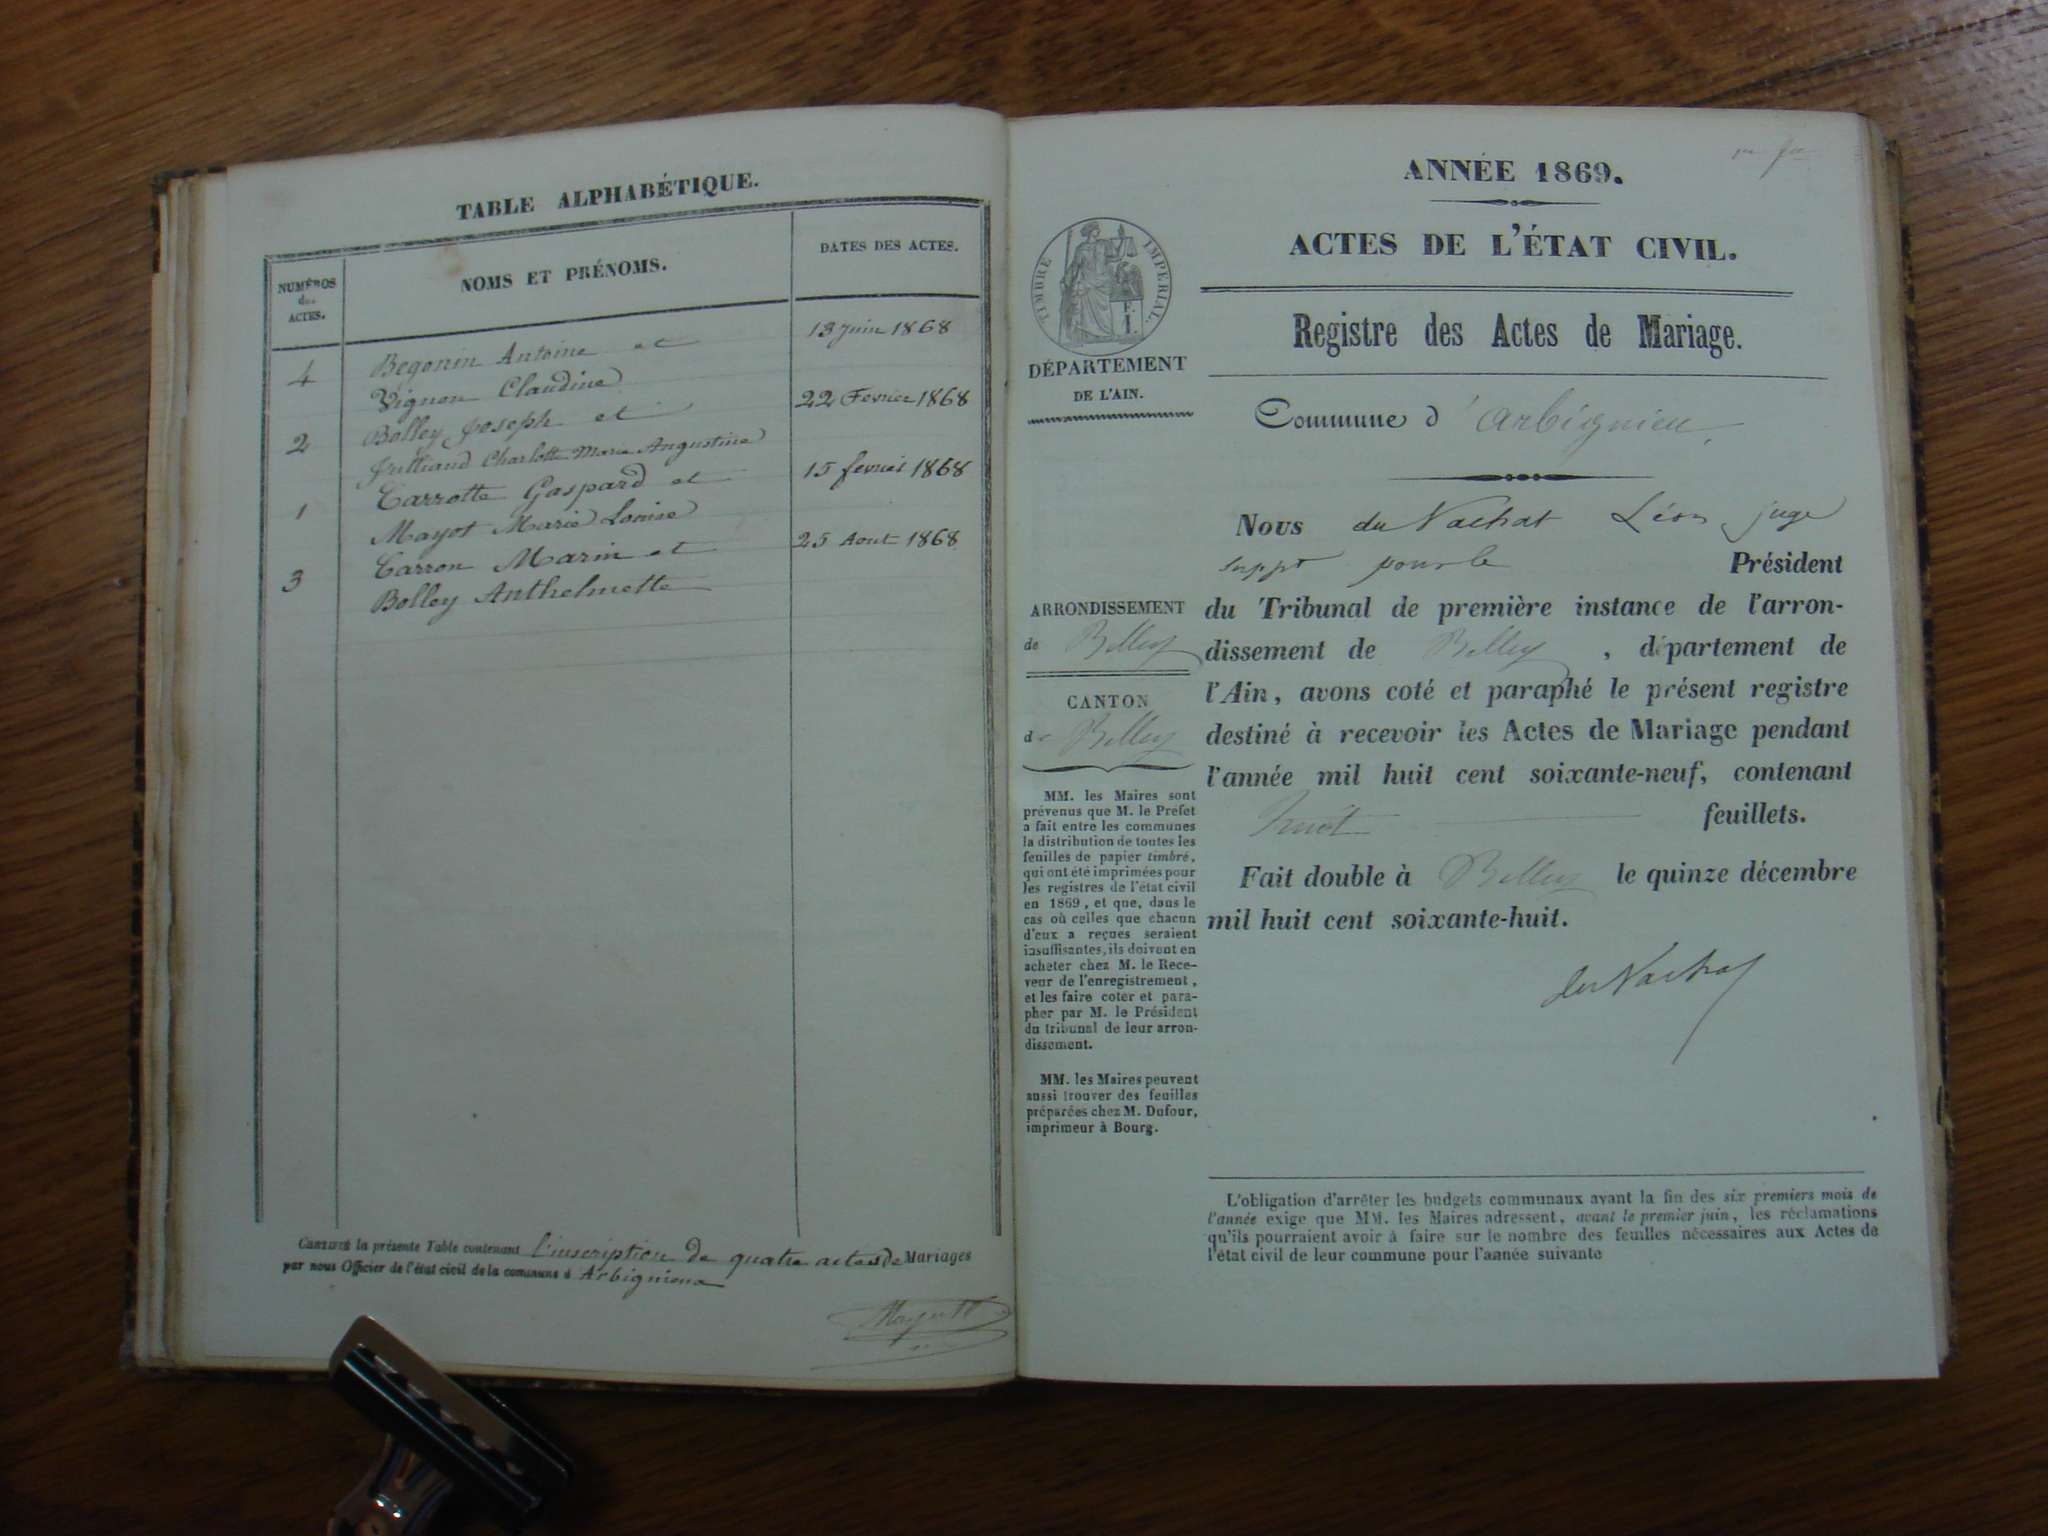 TABLE ALPHABÉTIQUE.
NUMÉROS
des
ACTES.
NOMS ET PRÉNOMS.
DATES DES ACTES.
4
Begonin Antoine et
13 Juin 1868
Vignon Claudine
2
Bolley Joseph et
22 Fevrier 1868
Julliand Charlotte Marie Augustine
1
Carrotte Gaspard et
15 fevrier 1868
Mayot Marie Louise
3
Carron Marin et
25 Aout 1868
Bolley Anthelmette
CERTIFIÉ la présente Table contenant l'inscription de quatre actes de Mariages
par nous Officier de l'état civil de la commune d Arbignieu
ANNÉE 1869.
ACTES DE L'ÉTAT CIVIL.
Registre des Actes de Mariage.
TIMBRE IMPERIAL.
DÉPARTEMENT
DE L'AIN.
Commune d'Arbignieu
ARRONDISSEMENT
de Belley
CANTON
de Belley
MM. les Maires sont
prévenus que M. le Préfet
a fait entre les communes
la distribution de toutes les
feuilles de papier timbré,
qui ont été imprimées pour
les registres de l'état civil
en 1869, et que, dans le
cas où celles que chacun
d'eux a reçues seraient
insuffisantes, ils doivent en
acheter chez M. le Rece-
veur de l'enregistrement,
et les faire coter et para-
pher par M. le Président
du tribunal de leur arron-
dissement.
MM. les Maires peuvent
aussi trouver des feuilles
préparées chez M. Dufour,
imprimeur à Bourg.
Nous du Nachat Léon juge
suppt pour le Président
du Tribunal de première instance de l'arron-
dissement de Belley, département de
l'Ain, avons coté et paraphé le présent registre
destiné à recevoir les Actes de Mariage pendant
l'année mil huit cent soixante-neuf, contenant
huit feuillets.
Fait double à Belley le quinze décembre
mil huit cent soixante-huit.
du Nachat
L'obligation d'arrêter les budgets communaux avant la fin des six premiers mois de
l'année exige que MM. les Maires adressent, avant le premier juin, les réclamations
qu'ils pourraient avoir à faire sur le nombre des feuilles nécessaires aux Actes de
l'état civil de leur commune pour l'année suivante